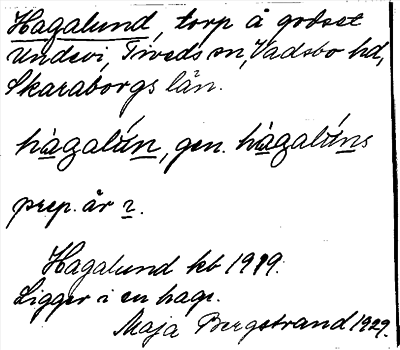 Hagalund, torp å godset
Undevi, Tiveds sn, Vadsbo hd,
Skaraborgs län.
hàgalún, gen. hàgalúns
prep. är
Hagalund kb 1919.
Ligger i en hage.
Maja Bergstrand 1929.